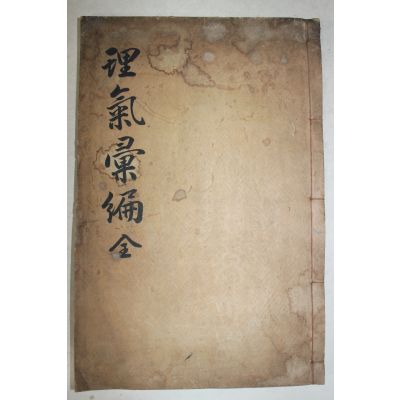 理氣彙編全